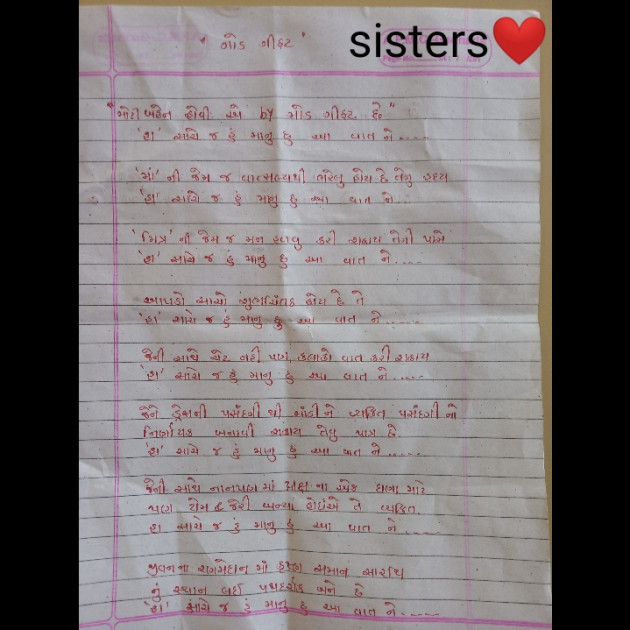 sisters❤️
" ગોડ ગીફ્ટ "
"મોટી બહેન હોવી એ by ગોડ ગીફ્ટ છે"
'હા' સાચે જ હું માનુ છુ આ વાત ને.....
'માં' ની જેમ જ વાત્સલ્યથી ભરેલુ હોય છે તેનુ હ્રદય
'હા' સાચે જ હું માનુ છુ આ વાત ને...
'મિત્ર' ની જેમ જ મન હળવુ કરી શકાય તેની પાસે
'હા' સાચે જ હું માનુ છુ આ વાત ને.....
આપણો સાચો શુભચિંતક હોય છે તે
'હા' સાચે જ હું માનુ છુ આ વાત ને......
જેની સાથે ચેટ નહી પણ, કલાકો વાત કરી શકાય
'હા' સાચે જ હું માનુ છુ આ વાત ને.....
જેને ડ્રેસની પસંદગી થી માંડી ને વ્યકિત પસંદગી નો
નિર્ણાયક બનાવી શકાય તેવુ પાત્ર છે.
'હા' સાચે જ હું માનુ છુ આ વાત ને.....
જેની સાથે નાનપણ માં દ્રાક્ષ ના એક દાણા માટે
પણ ટોમ & જેરી બન્યા હોઇએ તે વ્યકિત.
હા સાચે જ હું માનુ છુ આ વાત ને.....
જીવન ના રણમેદાન માં કૃષ્ણ સમાન સારથિ
નું સ્થાન લઈ પથદર્શક બને છે
'હા' સાચે જ હું માનુ છુ આ વાત ને.....